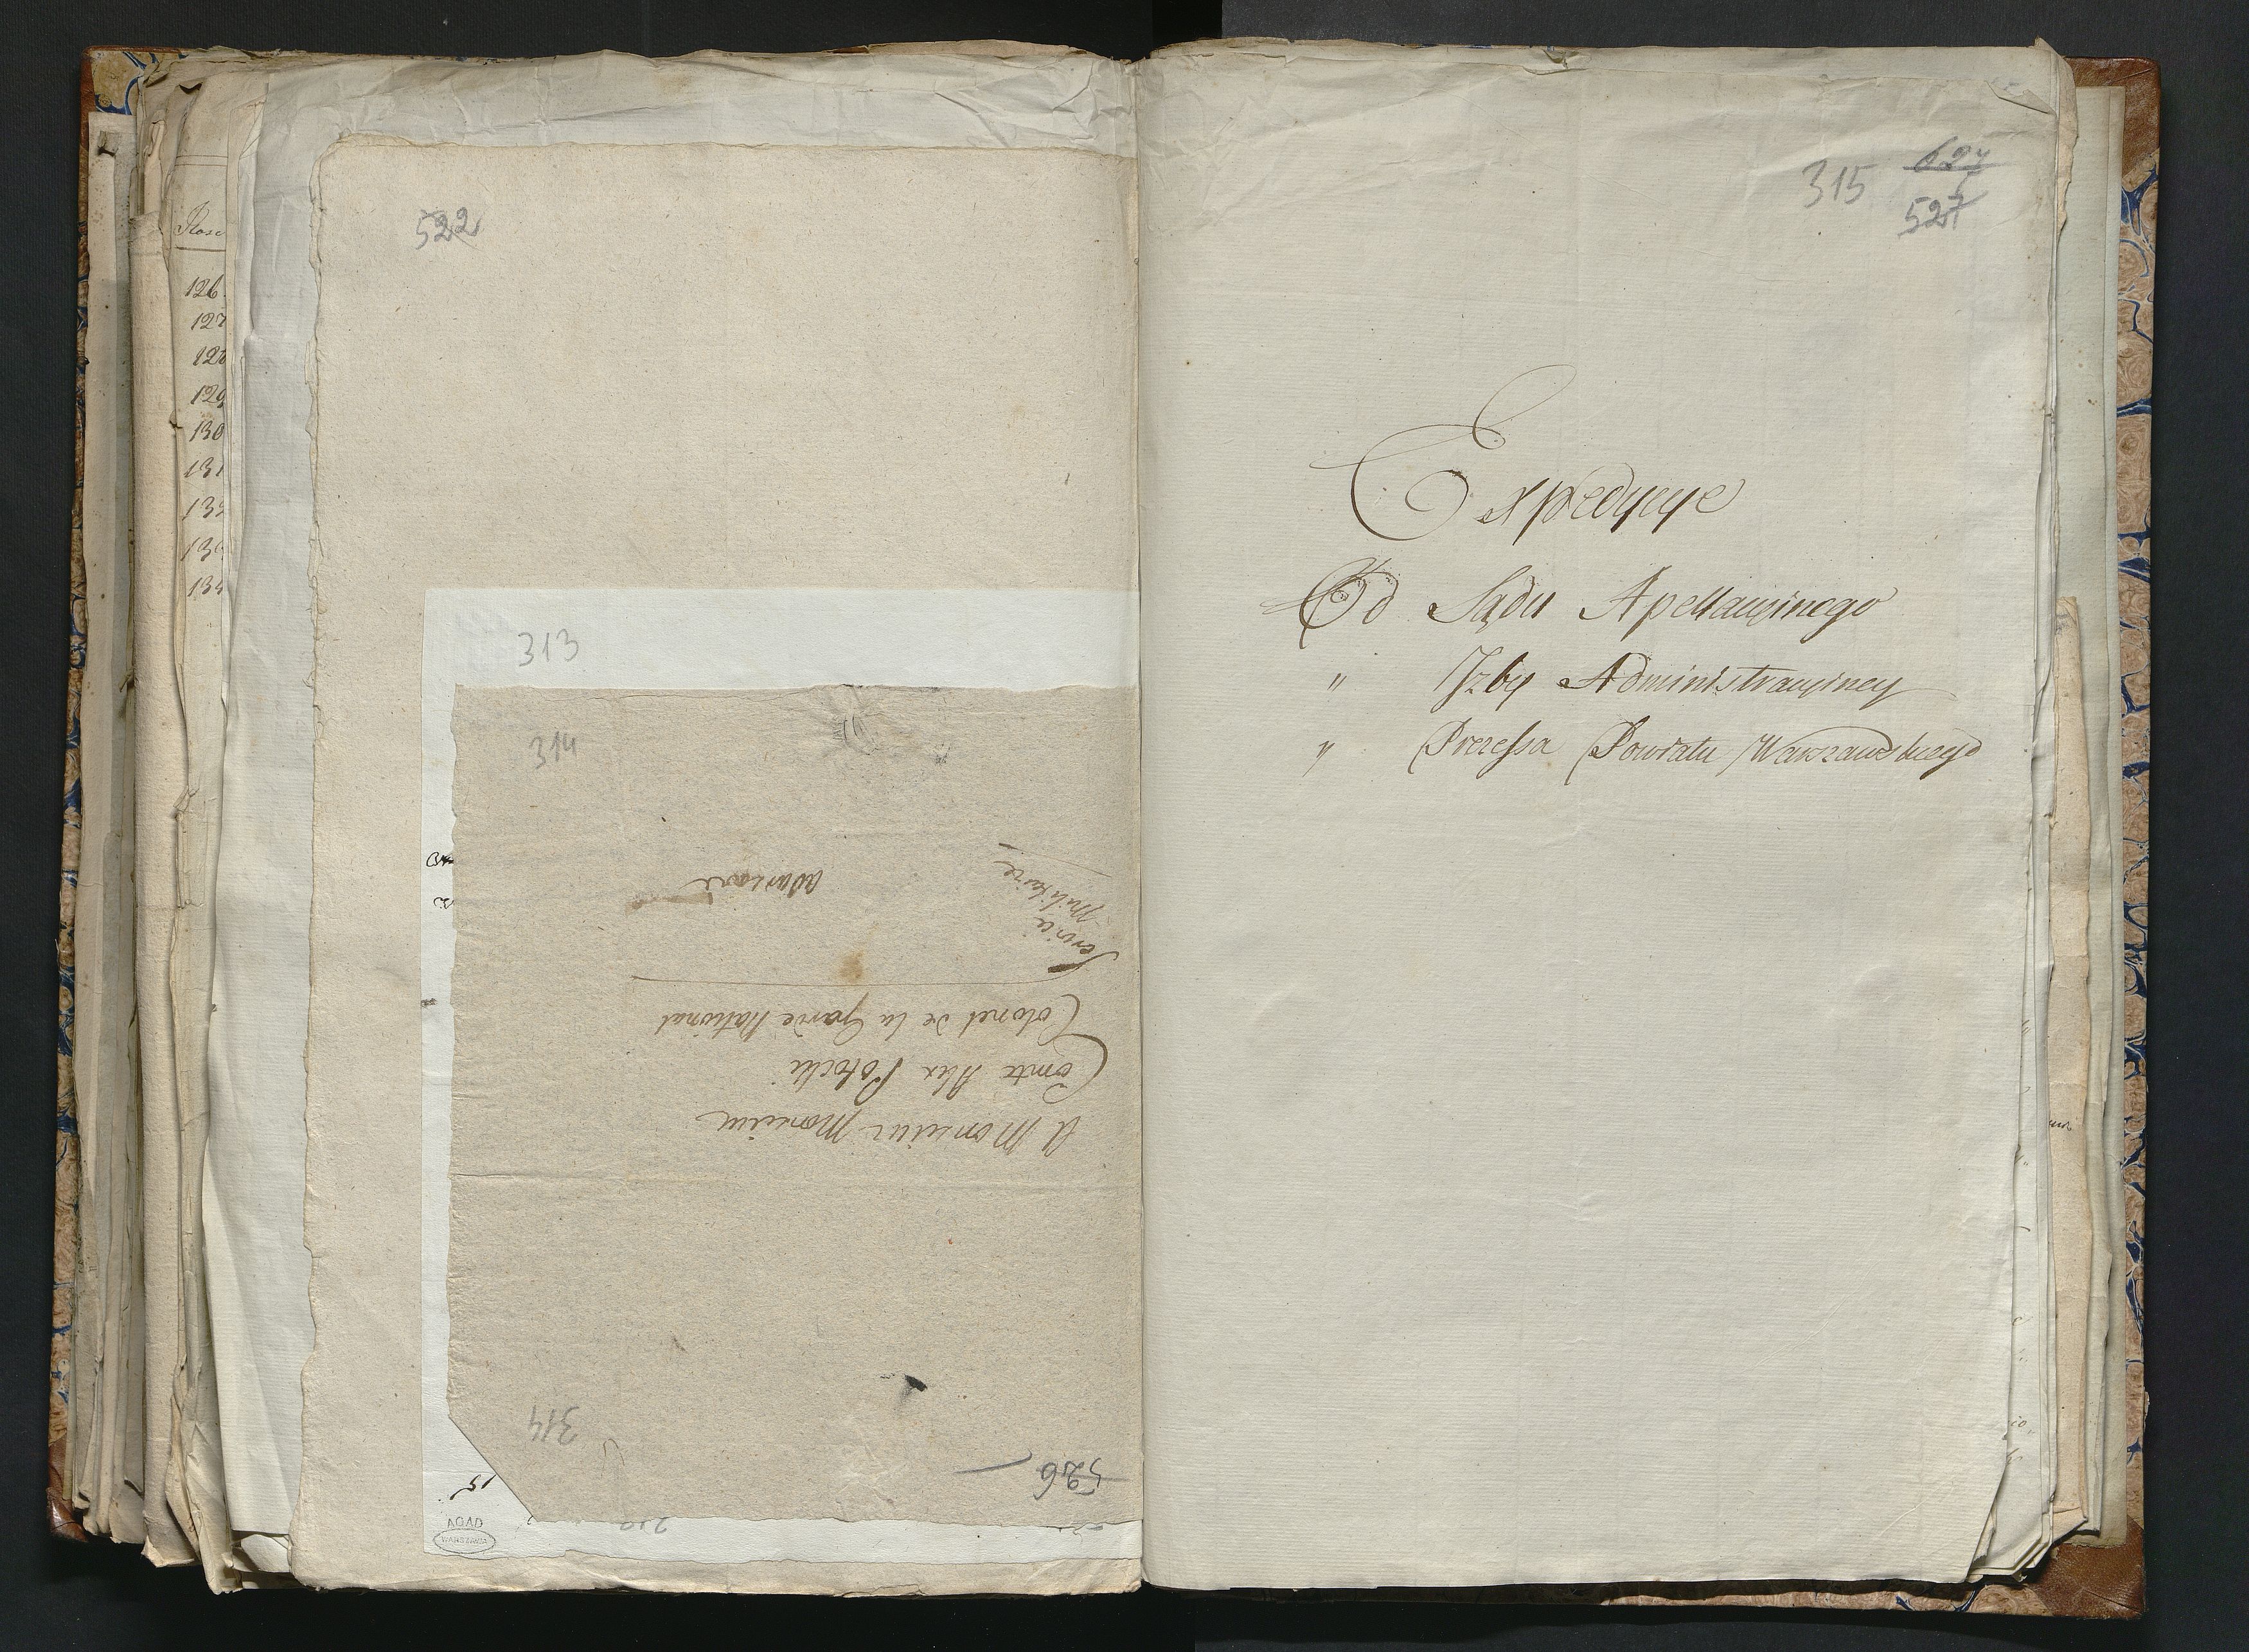 Rose
126.
127
128
129
130
131
132
134
522
313
314
A Monsieur Monsieur
Comte Alex Potocki
Colonel de la Garde National
Service
Militaire
a Varsovie
314
526
15
AGAD
WARSZAWA
315
627
527
Expedycye
Od Sądu Apellacyinego
" Izby Administracyiney
" Prezessa Powiatu Warszawskiego